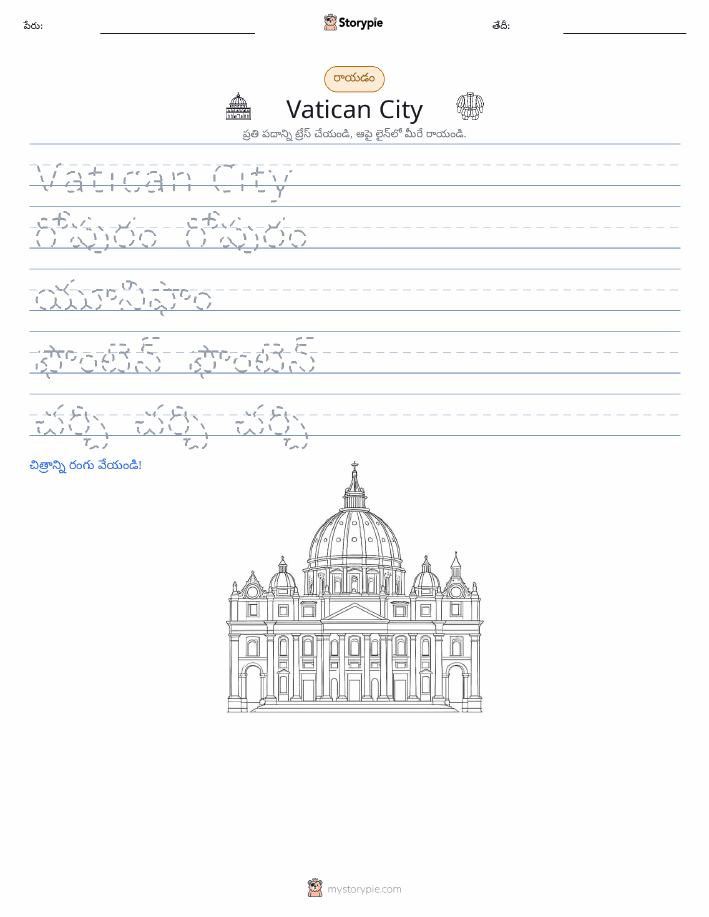 పేరు:
Storypie
తేదీ:
రాయడం
Vatican City
ప్రతి పదాన్ని ట్రేస్ చేయండి, ఆపై లైన్‌లో మీరే రాయండి.
Vatican City
గోపురం గోపురం
యూనిఫాం
ఫౌంటెన్ ఫౌంటెన్
చర్చి చర్చి చర్చి
చిత్రాన్ని రంగు వేయండి!
mystorypie.com